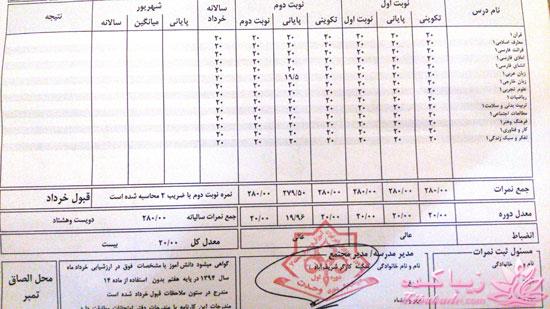 نام درس نوبت اول نوبت دوم سالانه خرداد شهریور نتیجه
تکوینی پایانی نوبت اول تکوینی پایانی نوبت دوم پایانی میانگین سالانه
قرآن ۱ ۲۰ ۲۰ ۲۰ ۲۰ ۲۰ ۲۰ ۲۰
معارف اسلامی ۱ ۲۰ ۲۰ ۲۰ ۲۰ ۲۰ ۲۰ ۲۰
قرائت فارسی ۱ ۲۰ ۲۰ ۲۰ ۲۰ ۲۰ ۲۰ ۲۰
املای فارسی ۱ ۲۰ ۲۰ ۲۰ ۲۰ ۲۰ ۲۰ ۲۰
انشای فارسی ۱ ۲۰ ۲۰ ۲۰ ۲۰ ۲۰ ۲۰ ۲۰
زبان عربی ۱ ۲۰ ۲۰ ۲۰ ۲۰ ۱۹/۵ ۲۰ ۲۰
زبان خارجی ۱ ۲۰ ۲۰ ۲۰ ۲۰ ۲۰ ۲۰ ۲۰
علوم تجربی ۱ ۲۰ ۲۰ ۲۰ ۲۰ ۲۰ ۲۰ ۲۰
ریاضیات ۱ ۲۰ ۲۰ ۲۰ ۲۰ ۲۰ ۲۰ ۲۰
تربیت بدنی و سلامت ۱ ۲۰ ۲۰ ۲۰ ۲۰ ۲۰ ۲۰ ۲۰
مطالعات اجتماعی ۱ ۲۰ ۲۰ ۲۰ ۲۰ ۲۰ ۲۰ ۲۰
فرهنگ وهنر ۱ ۲۰ ۲۰ ۲۰ ۲۰ ۲۰ ۲۰ ۲۰
کار و فناوری ۱ ۲۰ ۲۰ ۲۰ ۲۰ ۲۰ ۲۰ ۲۰
تفکر و سبک زندگی ۱ ۲۰ ۲۰ ۲۰ ۲۰ ۲۰ ۲۰ ۲۰
جمع نمرات ۲۸۰/۰۰ ۲۸۰/۰۰ ۲۸۰/۰۰ ۲۸۰/۰۰ ۲۷۹/۵۰ ۲۸۰/۰۰ نمره نوبت دوم با ضریب ۲ محاسبه شده است قبول خرداد
معدل دوره ۲۰/۰۰ ۲۰/۰۰ ۲۰/۰۰ ۲۰/۰۰ ۱۹/۹۶ ۲۰/۰۰ جمع نمرات سالیانه ۲۸۰/۰۰ دویست وهشتاد
انضباط عالی عالی معدل کل ۲۰/۰۰ بیست
مسئول ثبت نمرات
نام و نام خانوادگی
مدیر مدرسه/ مدیر مجتمع
نام و نام خانوادگی
گواهی میشود دانش آموز با مشخصات فوق در ارزشیابی خرداد ماه
سال ۱۳۹۴ در پایه هفتم بدون استفاده از ماده ۱۴
مندرج در ستون ملاحظات قبول خرداد شده است
محل الصاق
تمبر
وحدت
زیباکده